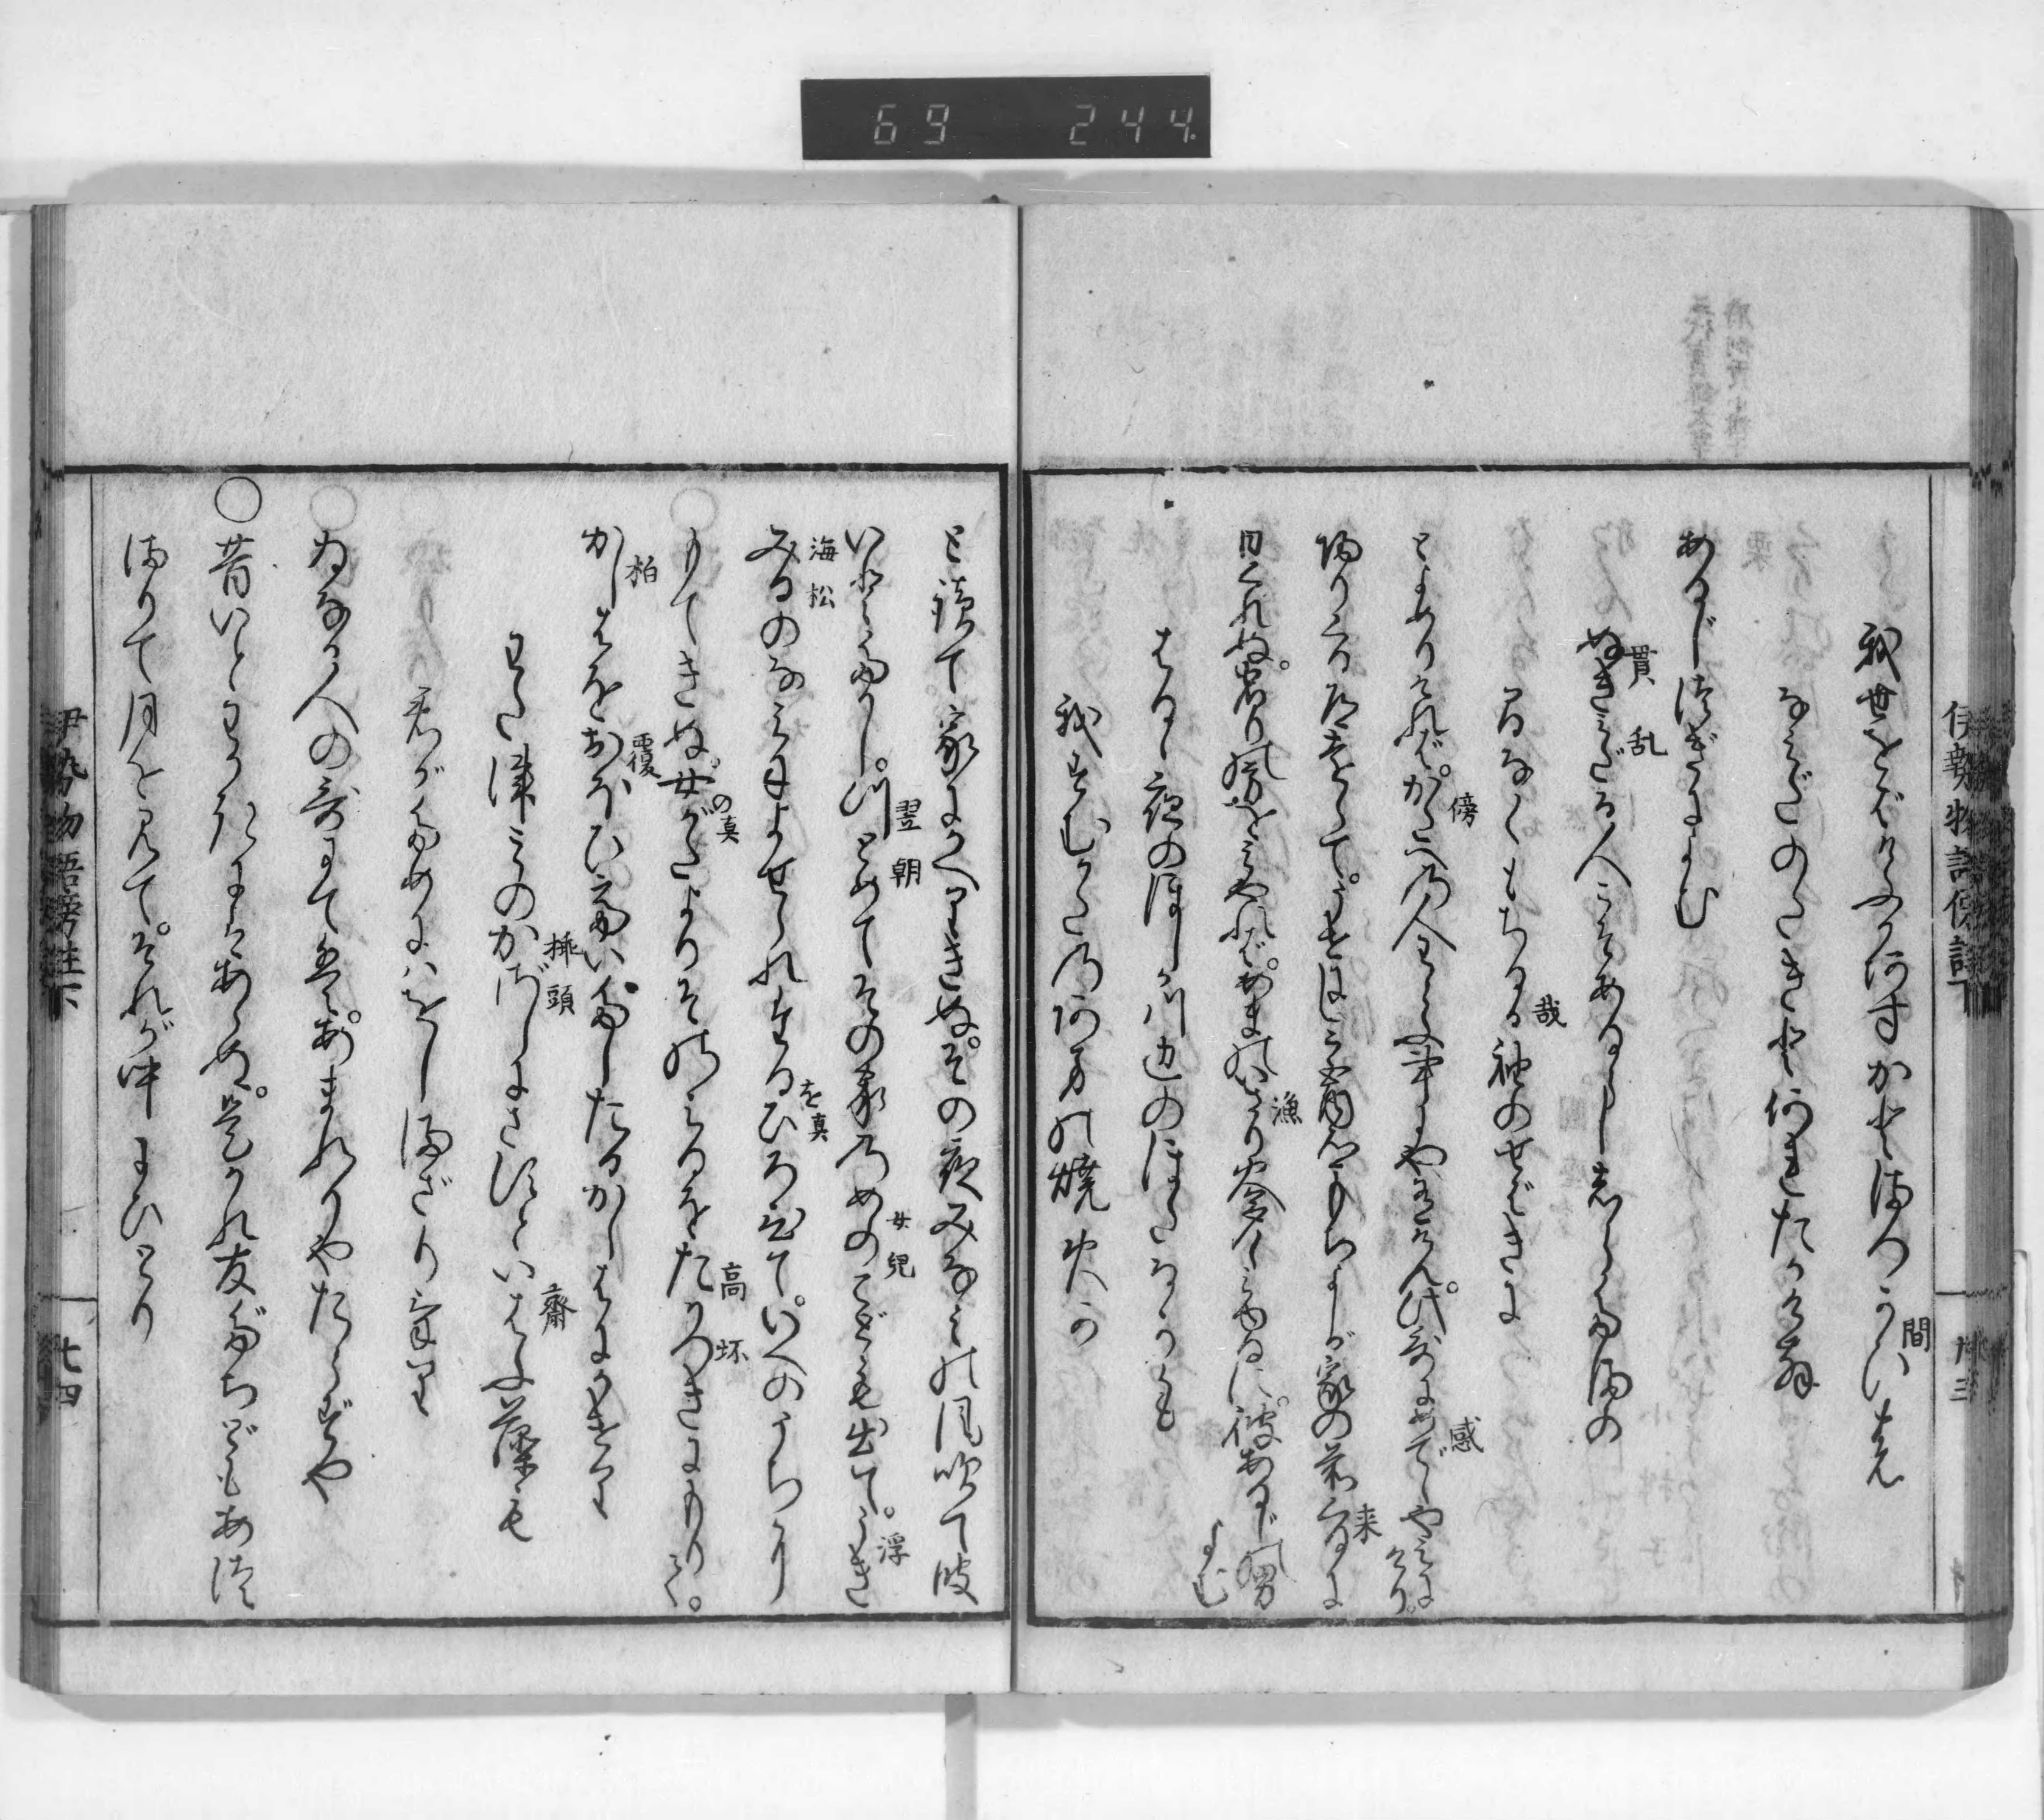 69 244.
伊勢物語傍註下
十三
我世をばけふかあすかとまつかひ(間)の
なみだのたきといづれたかけむ
あるじつぎによむ
ぬき(貫)みだ(乱)る人こそあるらししら玉の
まなくもちるか(哉)袖のせばきに
とよめりければかたへ(傍)の人わらふ事にや有けん此哥にめで(感)てやみにけり。
帰りくる道とをくてうせにし宮内卿もちよしが家の前くる(来)に
日くれぬ。やどりの方をみやればあまのいさり(漁)火多く見ゆるに。彼あるじの男よむ
はるゝ夜のほしか川辺のほたるかも
我すむかたのあまの焼火か
と読て家にかへりきぬ。その夜みなみの風吹て波
いとたかし。つとめて(翌朝)その家のめのこ(女児)ども出て。うき(浮)
みる(海松)のなみによせられたるひろひて(を真)。いへのうちに
もてきぬ。女がた(の真)よりそのみるをたかつき(高坏)にもりて。
かしは(柏)をおほひ(覆)ていだしたるかしはにかきけり
わたつみのかざし(挿頭)にさすといはふ(斎)藻も
君がためにはをしまざりけり
ゐなか人の哥にてはあまれりやたらずや
○昔いとわかきにはあらぬ。是かれ友だちどもあつ
まりて月を見て。それが中にひとり
伊勢物語傍註下
七四